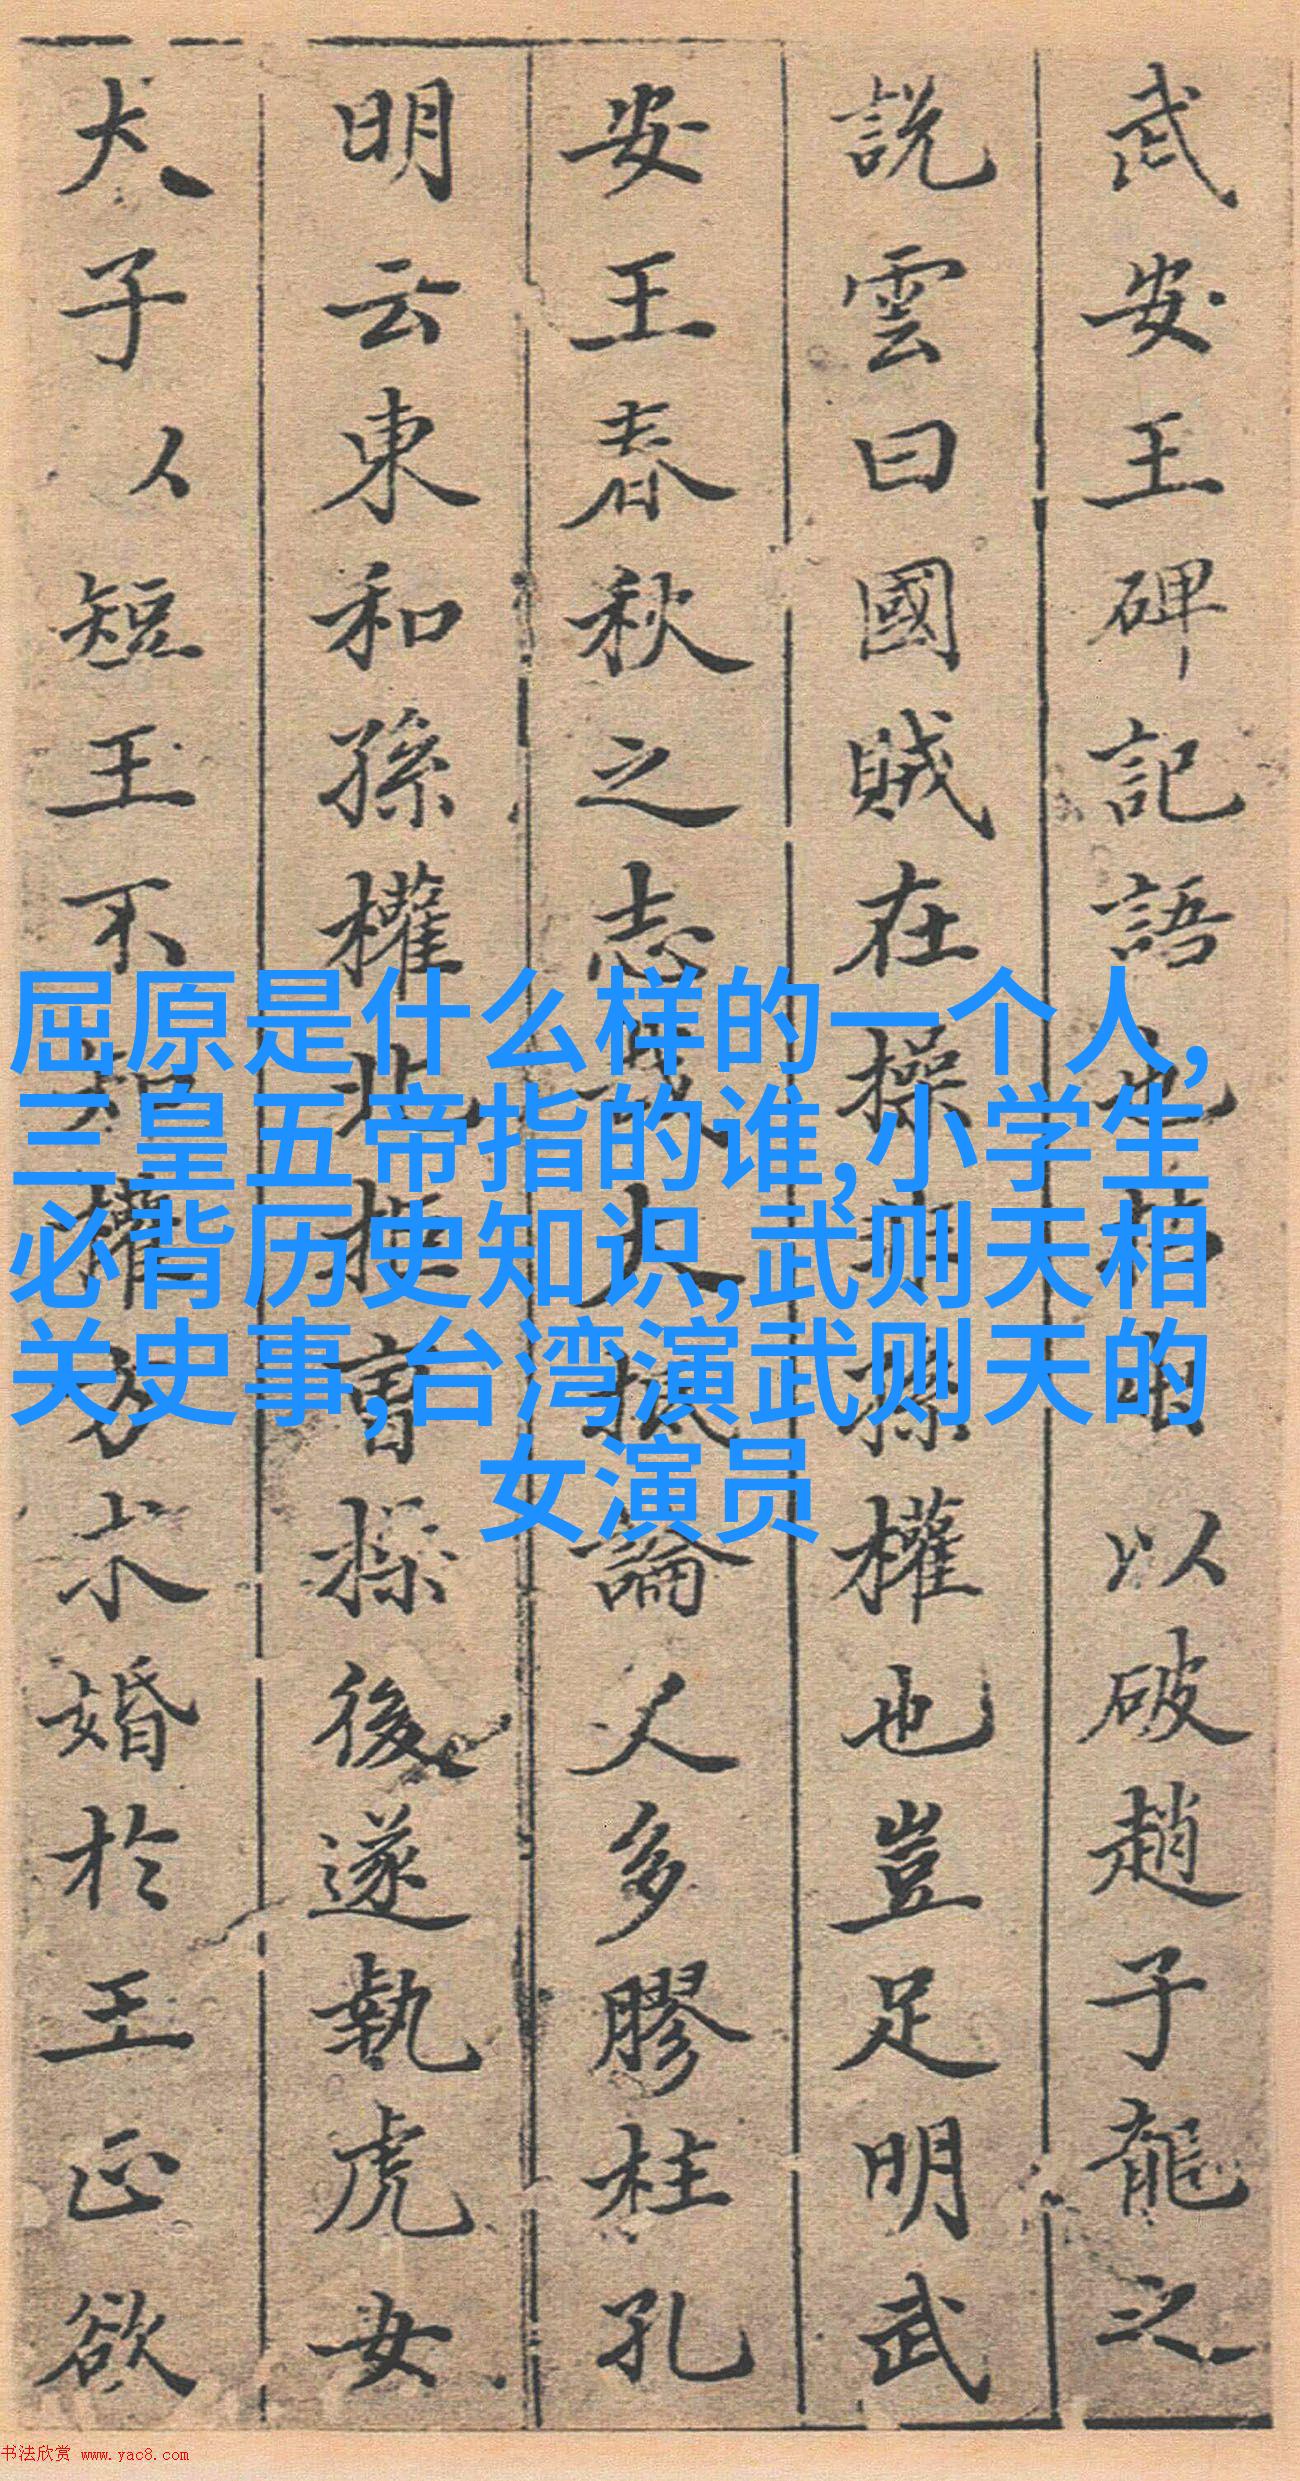 武安王碑記語也
以破趙子龍之
説雲曰國賊在操
孫權也豈足明武
安王春秋之志
論人多膠柱孔
明云東和孫權北拒曹操後遂執虎女
犬子人短王不
求婚於王正欲
屈原是什么样的一个人,
三皇五帝指的谁,小学生
必背历史知识,武则天相
关史事,台湾演武则天的
女演员
书法欣赏 www.yac8.com